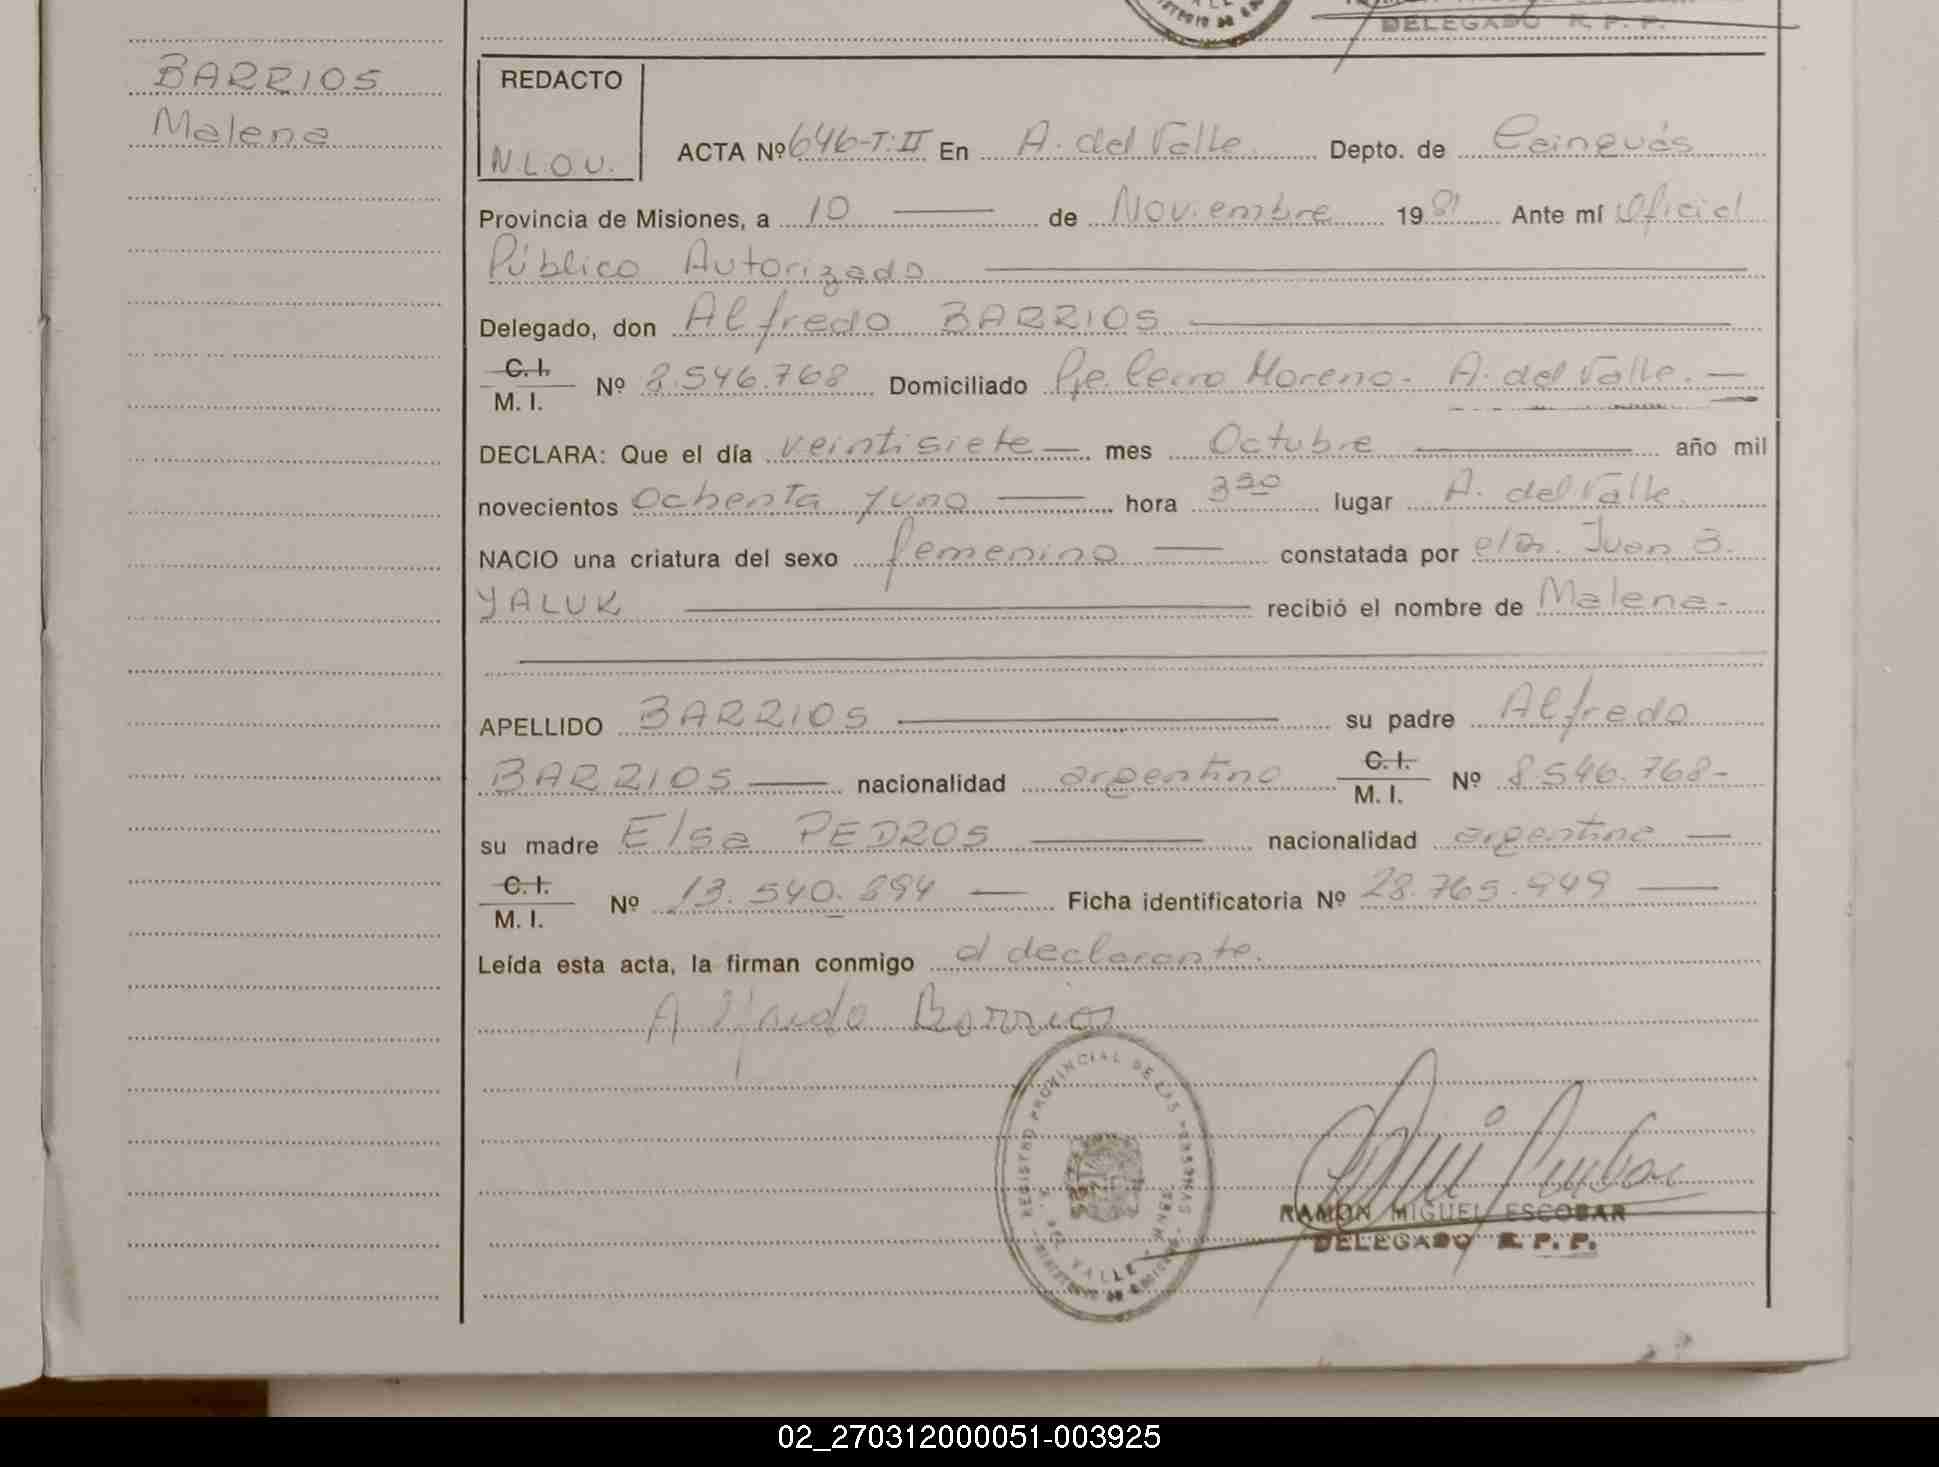 DELEGADO R. P. P.
BARRIOS
Malena
REDACTO
N.L.O.U.
ACTA Nº 646-T:II En A. del Valle Depto. de Cainguás
Provincia de Misiones, a 10 de Noviembre 1981 Ante mí Oficial
Público Autorizado
Delegado, don Alfredo BARRIOS
C. I.
M. I. Nº 8.546.768 Domiciliado Pje. Cerro Moreno - A. del Valle.
DECLARA: Que el día veintisiete mes Octubre año mil
novecientos ochenta y uno hora 3 30 lugar A. del Valle
NACIO una criatura del sexo femenino constatada por el Dr. Juan B.
YALUK recibió el nombre de Malena-
APELLIDO BARRIOS su padre Alfredo
BARRIOS nacionalidad argentino C. I. M. I. Nº 8.546.768-
su madre Elsa PEDROS nacionalidad argentina
C. I.
M. I. Nº 13.540.894 Ficha identificatoria Nº 28.765.949
Leída esta acta, la firman conmigo el declarante.
Alfredo Barrios
REGISTRO PROVINCIAL DE LAS PERSONAS
RAMON MIGUEL ESCOBAR
DELEGADO R. P. P.
02_270312000051-003925